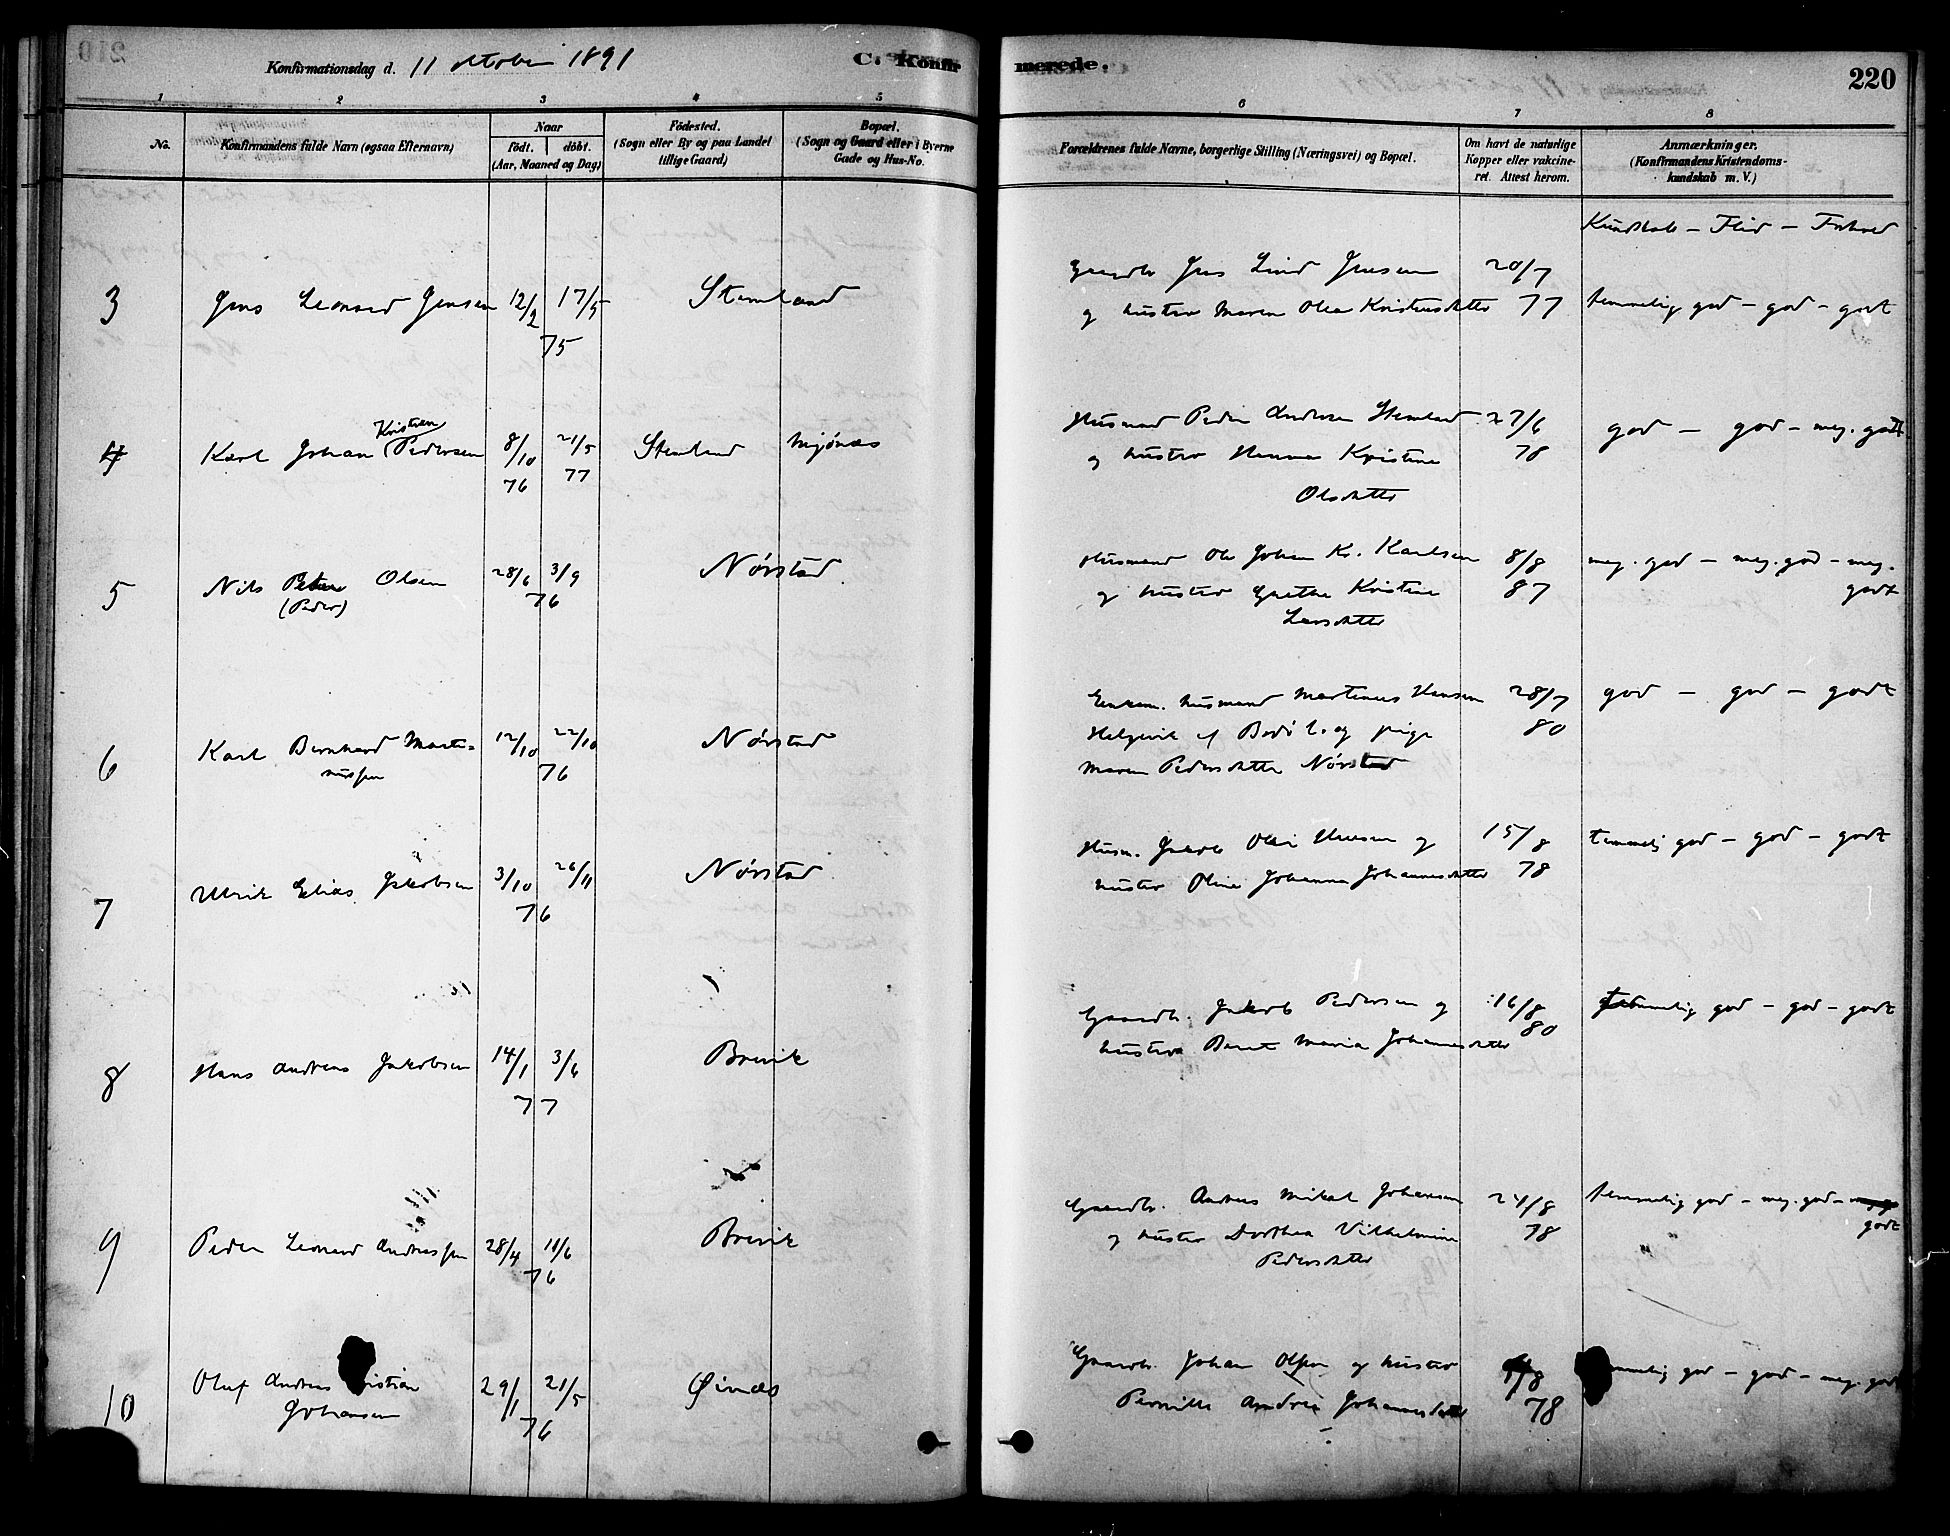 Konfirmationsdag d. 11 oktober 1891
C. Konfirmerede.
220
1 2 3 4 5 6 7 8
No.
Konfirmandens fulde Navn (ogsaa Efternavn)
Naar
født. døbt.
(Aar, Maaned og Dag)
Fødested.
(Sogn eller By og paa Landet
tillige Gaard)
Bopæl.
(Sogn og Gaard eller i Byerne
Gade og Hus-No.
Forældrenes fulde Navne, borgerlige Stilling (Næringsvei) og Bopæl.
Om havt de naturlige
Kopper eller vakcine-
ret. Attest herom.
Anmærkninger.
(Konfirmandens Kristendoms-
kundskab m. V.)
Kundskab – Flid – Forhold
3 Jens Leonard Jensen 12/2 17/5 75 Stemland
Gaardbr. Jens Lind Jensen 20/7
og hustru Maren Olea Kristensdatter 77 temmelig god – god – godt
4 Karl Johan Kristian Pedersen 8/10 76 21/5 77 Stemland Mjønæs
Husmand Peder Andersen Stemland 27/6 god – god – meg. godt
og hustru Hanna Kristine 78
Olsdatter
5 Nils Peter Olsen 28/6 3/9 76 Nørstad
(Peder)
Husmand Ole Johan Kr. Karlsen 8/8 meg. god – meg. god – meg.
og hustru Grethe Kristine 87 godt
Larsdatter
6 Karl Bernhard Marti- 12/10 22/10 76 Nørstad
nussen
Enkem. husmand Martinus Hansen 28/7 god – god – godt
Helgevik af Bodø l. og pige 80
Maren Pedersdatter Nørstad
7 Ulrik Elias Jakobsen 3/10 26/11 76 Nørstad
Husm. Jakob Olai Hansen og 15/8 temmelig god – god – godt
hustru Oline Johanna Johannesdatter 78
8 Hans Andreas Jakobsen 14/1 3/6 77 Brevik
Gaardbr. Jakob Pedersen og 16/8 temmelig god – god – godt
hustru Berit Maria Johannesdatter 80
9 Peder Leonard Andreassen 28/4 11/6 76 Brevik
Gaardbr. Andreas Mikal Johansen 24/8 temmelig god – meg. god –
og hustru Dorthea Vilhelmine 78 godt
Pedersdatter
10 Oluf Andreas Kristian 29/1 21/5 76 Øinæs
Johansen
Gaardbr. Johan Olsen og hustru /8 temmelig god – god – meg. godt
Pernille Andrea Johannesdatter 78